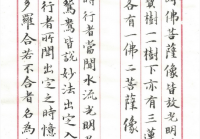 佛菩薩像皆放光明
寶樹一一樹下亦有三蓮
各有一佛二菩薩
時行者當聞水流光明
鴛鴦皆說妙法出定入
行者所聞出定之時憶
多羅合若不合者名為